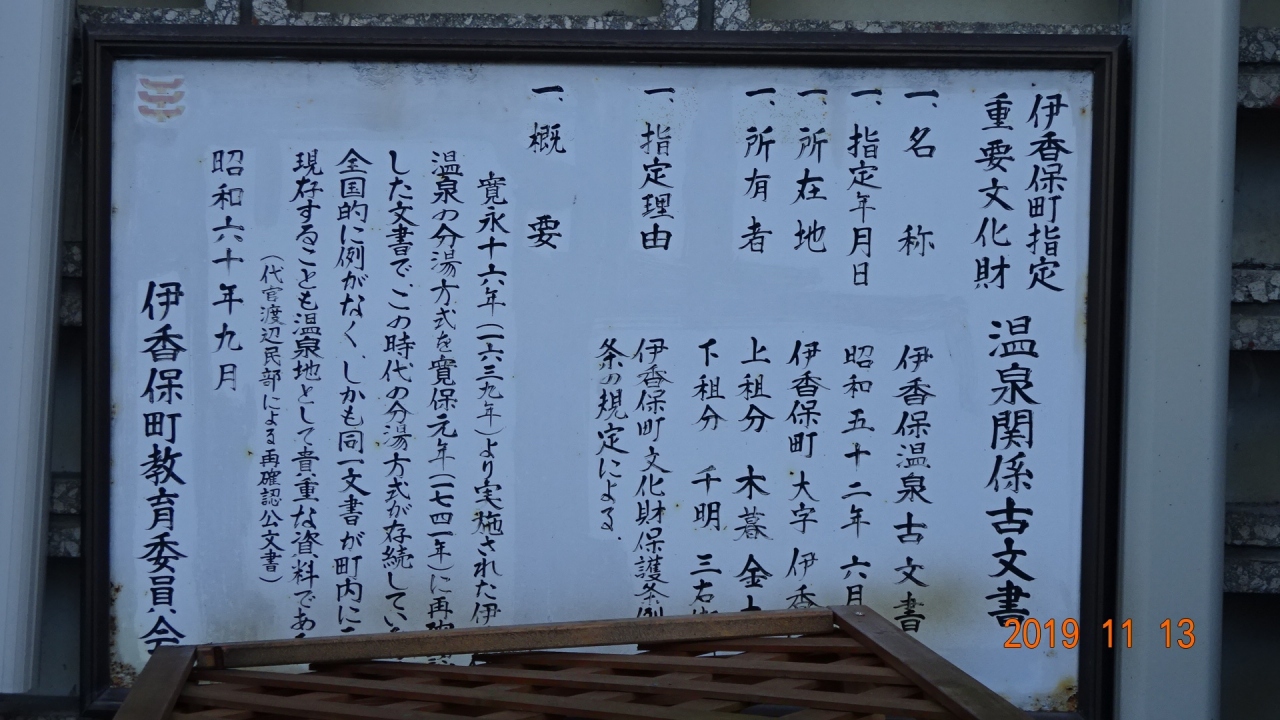 伊香保町指定
重要文化財
温泉関係古文書
一、名称 伊香保温泉古文書
一、指定年月日 昭和五十二年六月
一、所在地 伊香保町 大字 伊香
一、所有者 上組分 木暮 金
下組分 千明 三右
一、指定理由 伊香保町文化財保護条例
条の規定による.
一、概要
寛永十六年(一六三九年)より実施された伊
温泉の分湯方式を寛保元年(一七四一年)に再確
した文書で、この時代の分湯方式が存続してい
全国的に例がなく、しかも同一文書が町内に
現存することも温泉地として貴重な資料であ
(代官渡辺民部による再確認公文書)
昭和六十年九月
伊香保町教育委員会
2019 11 13